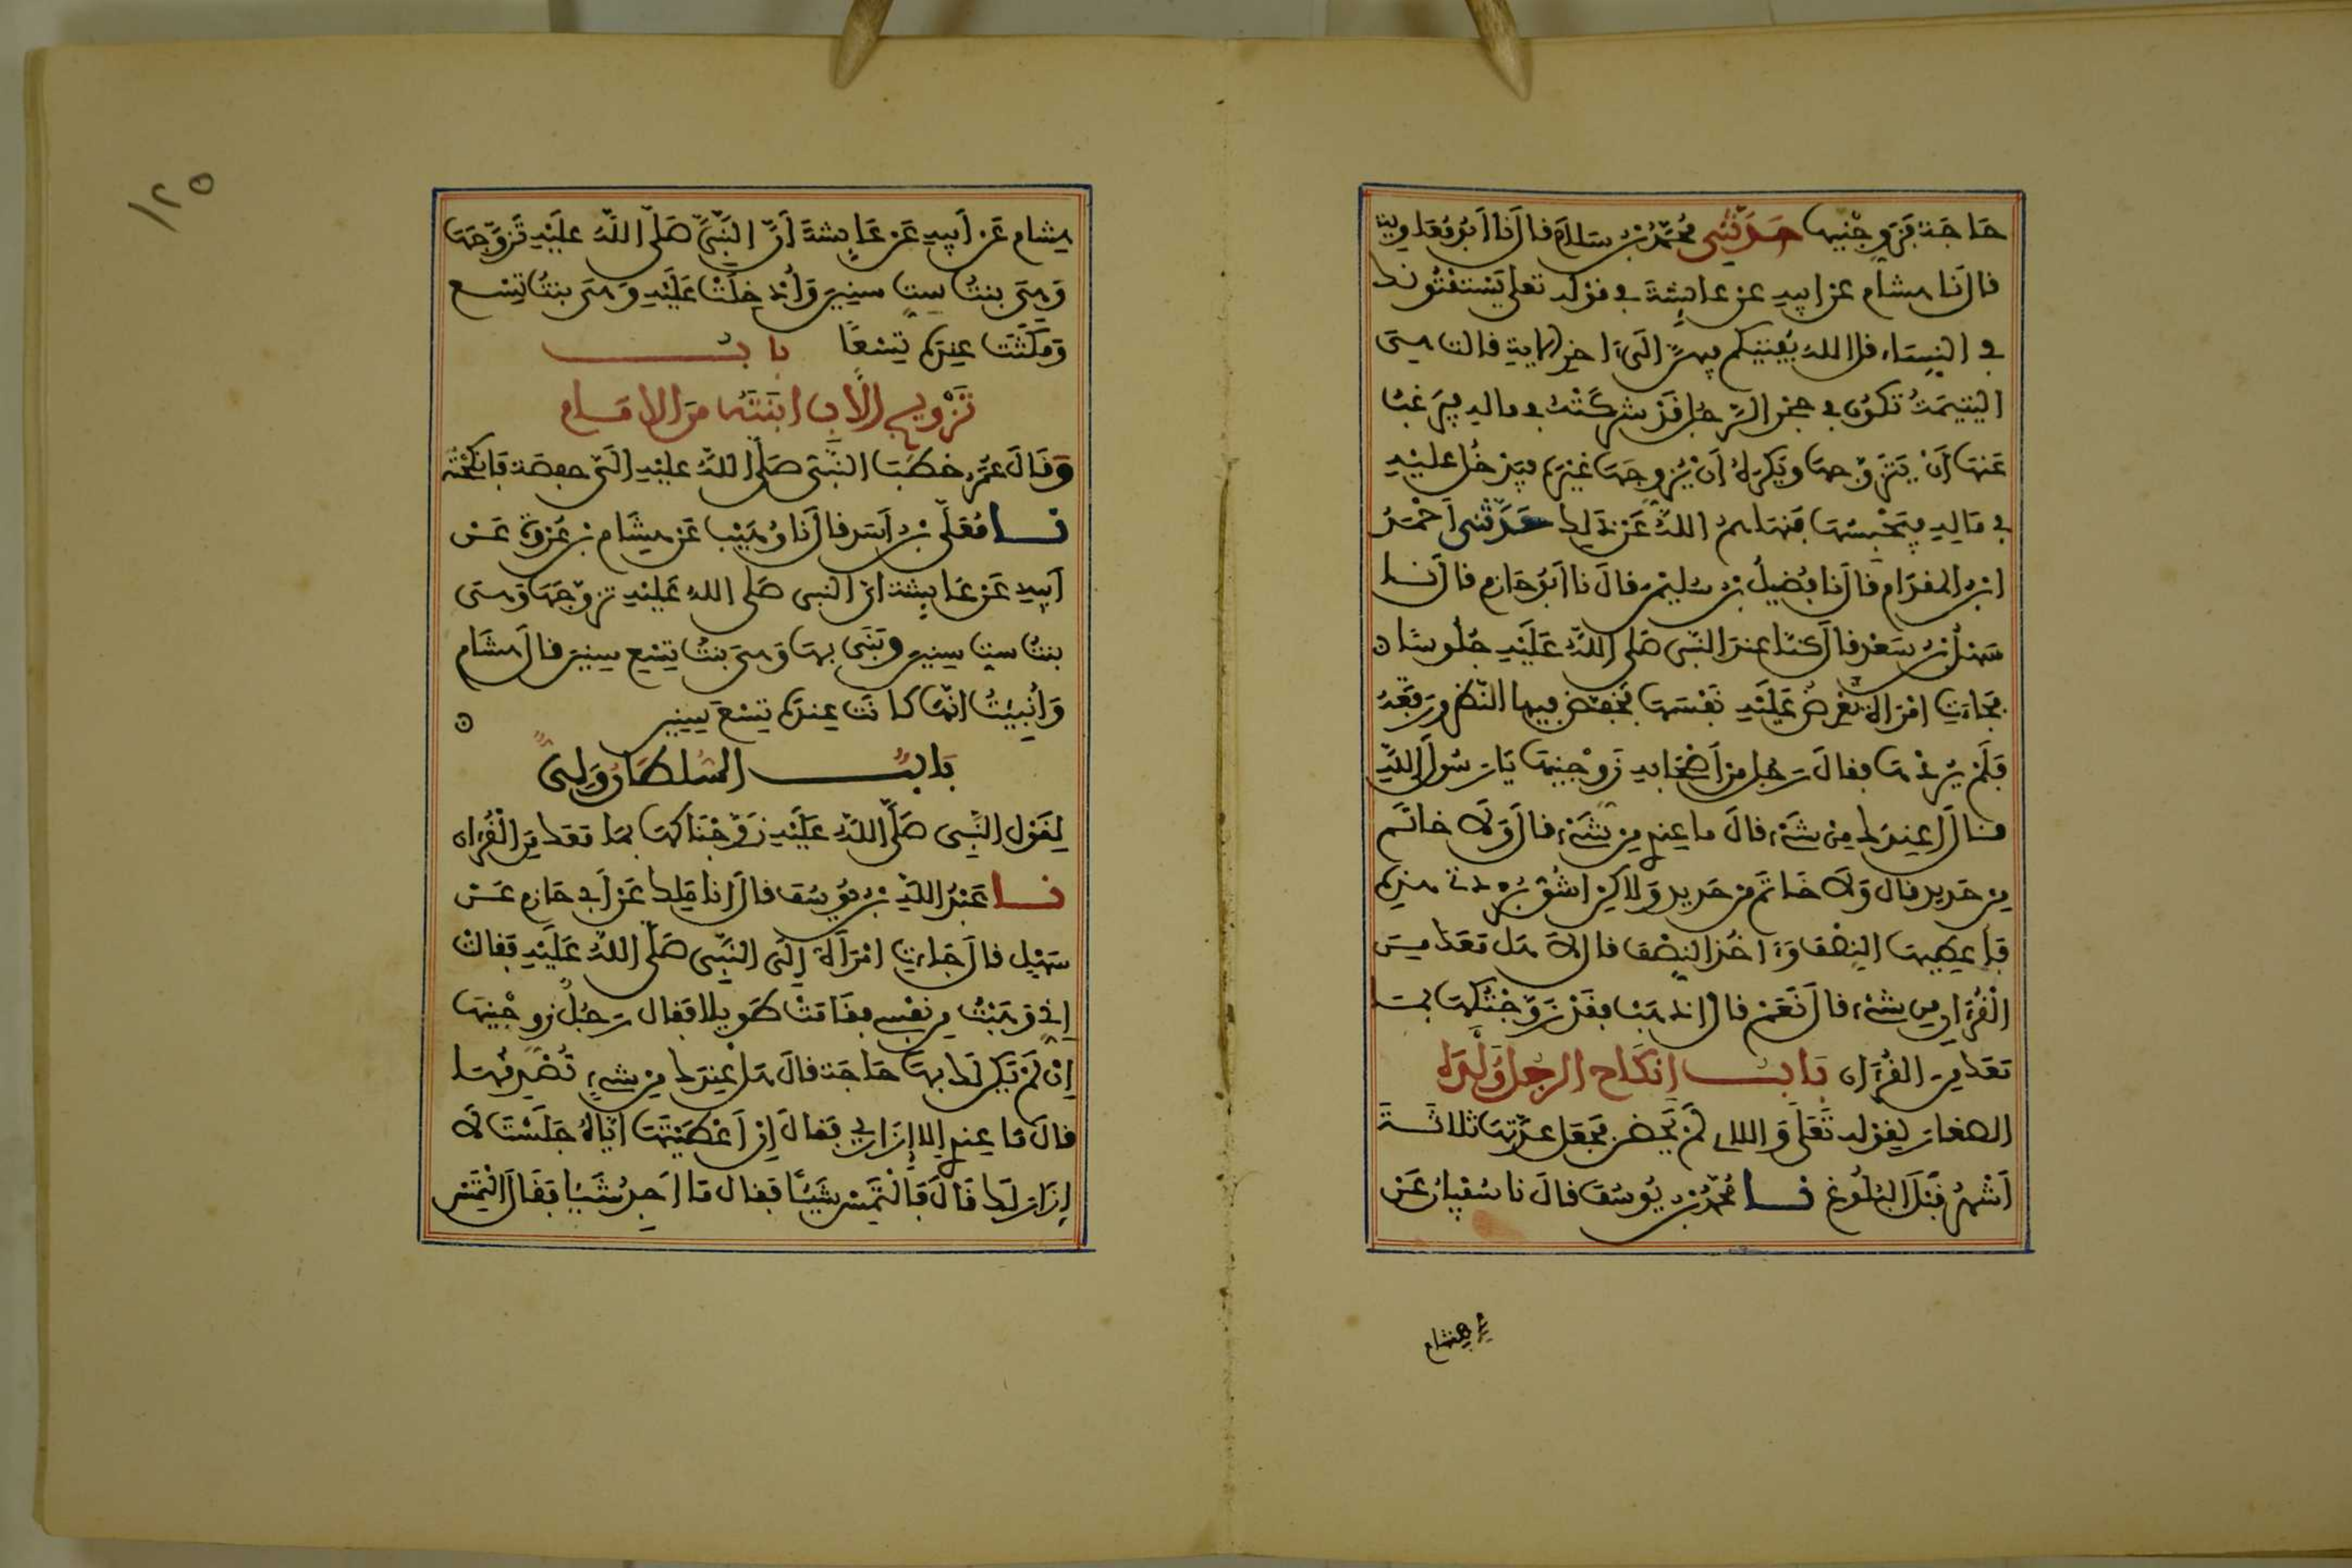 حَاجَة فَزَوِّجْنِيهَا حَدَّثَنِي مُحَمَّدُ بْنُ سَلَام قَالَ نَا أَبُو مُعَاوِية
قال نَا هشام عن ابيهِ عن عائِشةَ في قوْلِه تعلى يَسْتَفْتُونك
في النِّسَاء قل اللهُ يُفْتِيكُم فِيهِنَّ الَى ءاخر الاية قالت هِيَ
اليَتِيمَةُ تكونُ في حِجْر الرَّجُلِ قَدْ شَرِكَتْهُ في مالِه فيَرغبُ
عَنها أَنْ يَتَزَوَّجها ويَكْرَهُ أَنْ يُزَوِّجَها غيْرَه فيدْخُل عليْهِ
في مَالِهِ فيَحْبِسُها فَنَهَاهم اللهُ عَن ذَلِك حَدَّثَنِي أَحْمَدُ
ابن المقدَام قالَ نا فُضَيلُ بْن سُلَيْمن قالَ نا أبُو حَازِم قالَ نَا
سَهْلُ بْن سَعْد قالَ كنّا عِندَ النَّبي صَلى اللَّهُ عَلَيْهِ جُلُوسًا ن
فَجَاءَتِ امْرَأَة تَعْرِضُ عَلَيْهِ نَفْسَها فَخَفَّضَ فيها النَّظَر ورَفَعَهُ
فَلَمْ يُرِدْها فقالَ رَجُل مِن أَصْحَابِهِ زَوِّجْنِيهَا يَا رَسُولَ اللَّهِ
قالَ أَعِندَك مِنْ شَيْء قالَ ما عِندِي مِن شَيْء قالَ وَلَا خَاتَم
مِن حَديد قال وَلَا خَاتَم مِن حَديد وَلاكِن اشُقّ بُرْدتي هذِه
فَأُعطِيها النِّصْفَ وَءَاخُذ النِّصْفَ قالَ لَا هَل مَعَكَ مِنَ
الْقُرْءَانِ شَيْء قالَ نَعَمْ قالَ اذهَبْ فقَدْ زَوَّجْتُكَها بِمَا
مَعَكَ مِنَ القُرْءَان بَابُ إنكَاح الرجُل وَلَدَهُ
الصغار لِقوْله تَعَلَى وَاللاءِ لَمْ يَحِضْنَ فجَعَل عدَّتَها ثلاثَةَ
أَشْهُر قَبْلَ البُلُوغ نَا مُحَمَّدُ بْن يُوسُفَ قالَ نا سُفْيَانُ عَن
هشام
١٢٥
هشام عَن أَبِيهِ عَن عَائِشةَ أَنَّ النَّبِيَّ صَلَّى اللَّهُ عَلَيْهِ تَزَوَّجَهَا
وَهِيَ بنتُ سِتِ سِنِينَ وَأُدْخِلَتْ عَلَيْهِ وَهيَ بنتُ تِسْع
وَمَكَثَتْ عِندَه تِسْعًا بابُ
تَزْوِيج الأَبِ ابْنَتَهُ مِنَ الإمَام
وَقَالَ عُمَرُ خَطَبَ النَّبي صَلى اللَّهُ عليْهِ الَيَّ حفصَة فأنكَحْتُه
نَا مُعَلَّى بْنُ أسَد قالَ نَا وُهَيْب عَن هِشَام بْن عُرْوَةَ عَنْ
أَبِيهِ عَن عَائِشة ان النبي صَلى اللهُ عَليْهِ تَزوَّجَها وَهيَ
بنتُ سِتِ سِنِينَ وبَنَى بها وَهيَ بنتُ تِسْع سِنِينَ قالَ هشَام
وَأُنْبِئْتُ انَّها كانَت عِندَه تِسْعَ سِنِينَ ن
بَابُ السُّلطَانُ وَلِيّ
لِقَوْل النَّبِي صَلَّى اللَّهُ عَلَيْهِ زَوَّجْنَاكَها بمَا مَعَكَ مِنَ الْقُرْءَان
نَا عَبْدُ اللَّهِ بْنُ يُوسُفَ قالَ انا مَالِك عَن أبي حَازِم عَنْ
سَهْلِ قالَ جَاءَتِ امْرَأَة إلَى النَّبِي صَلَّى اللَّهُ عَلَيْهِ فَقالَتْ
إِنِّي وَهَبْتُ مِن نفْسِي فقَامَتْ طَوِيلا فقال رَجُلٌ زَوِّجْنِيهَا
إِنْ لَمْ تَكُن لَكَ بِهَا حَاجَة قالَ هَل عِندَك مِن شيْءٍ تُصْدِقُهَا
قالَ مَا عِندِي إلا إزَارِي فقَالَ إنْ أَعْطَيْتَهَا إيَّاهُ جَلَسْتَ لَا
إزَارَ لَكَ قَالَ فَالْتَمِسْ شَيْئًا فقال مَا أَجِدُ شَيْئا فقَالَ الْتَمِسْ